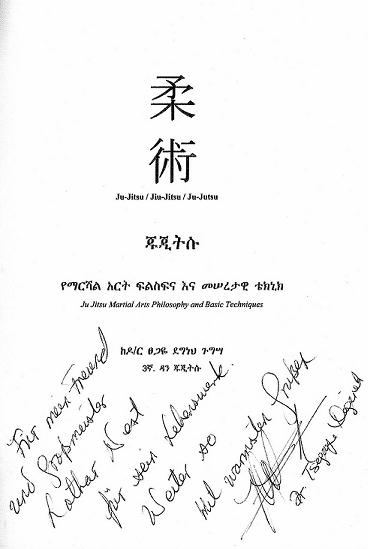 柔
術
Ju-Jitsu / Jiu-Jitsu / Ju-Jutsu
ጁጂትሱ
የማርሻል አርት ፍልስፍና እና መሠረታዊ ቴክኒክ
Ju Jitsu Martial Arts Philosophy and Basic Techniques
ከዶ/ር ፀጋዬ ደግነህ ጉግሣ
3ኛ. ዳን ጁጂትሱ
Für mein Freund
und Großmeister
Lothar
für sein Lebenswerk.
Weiter so
Mit warmsten Grüßen
Dr. Tsegaye Degineh